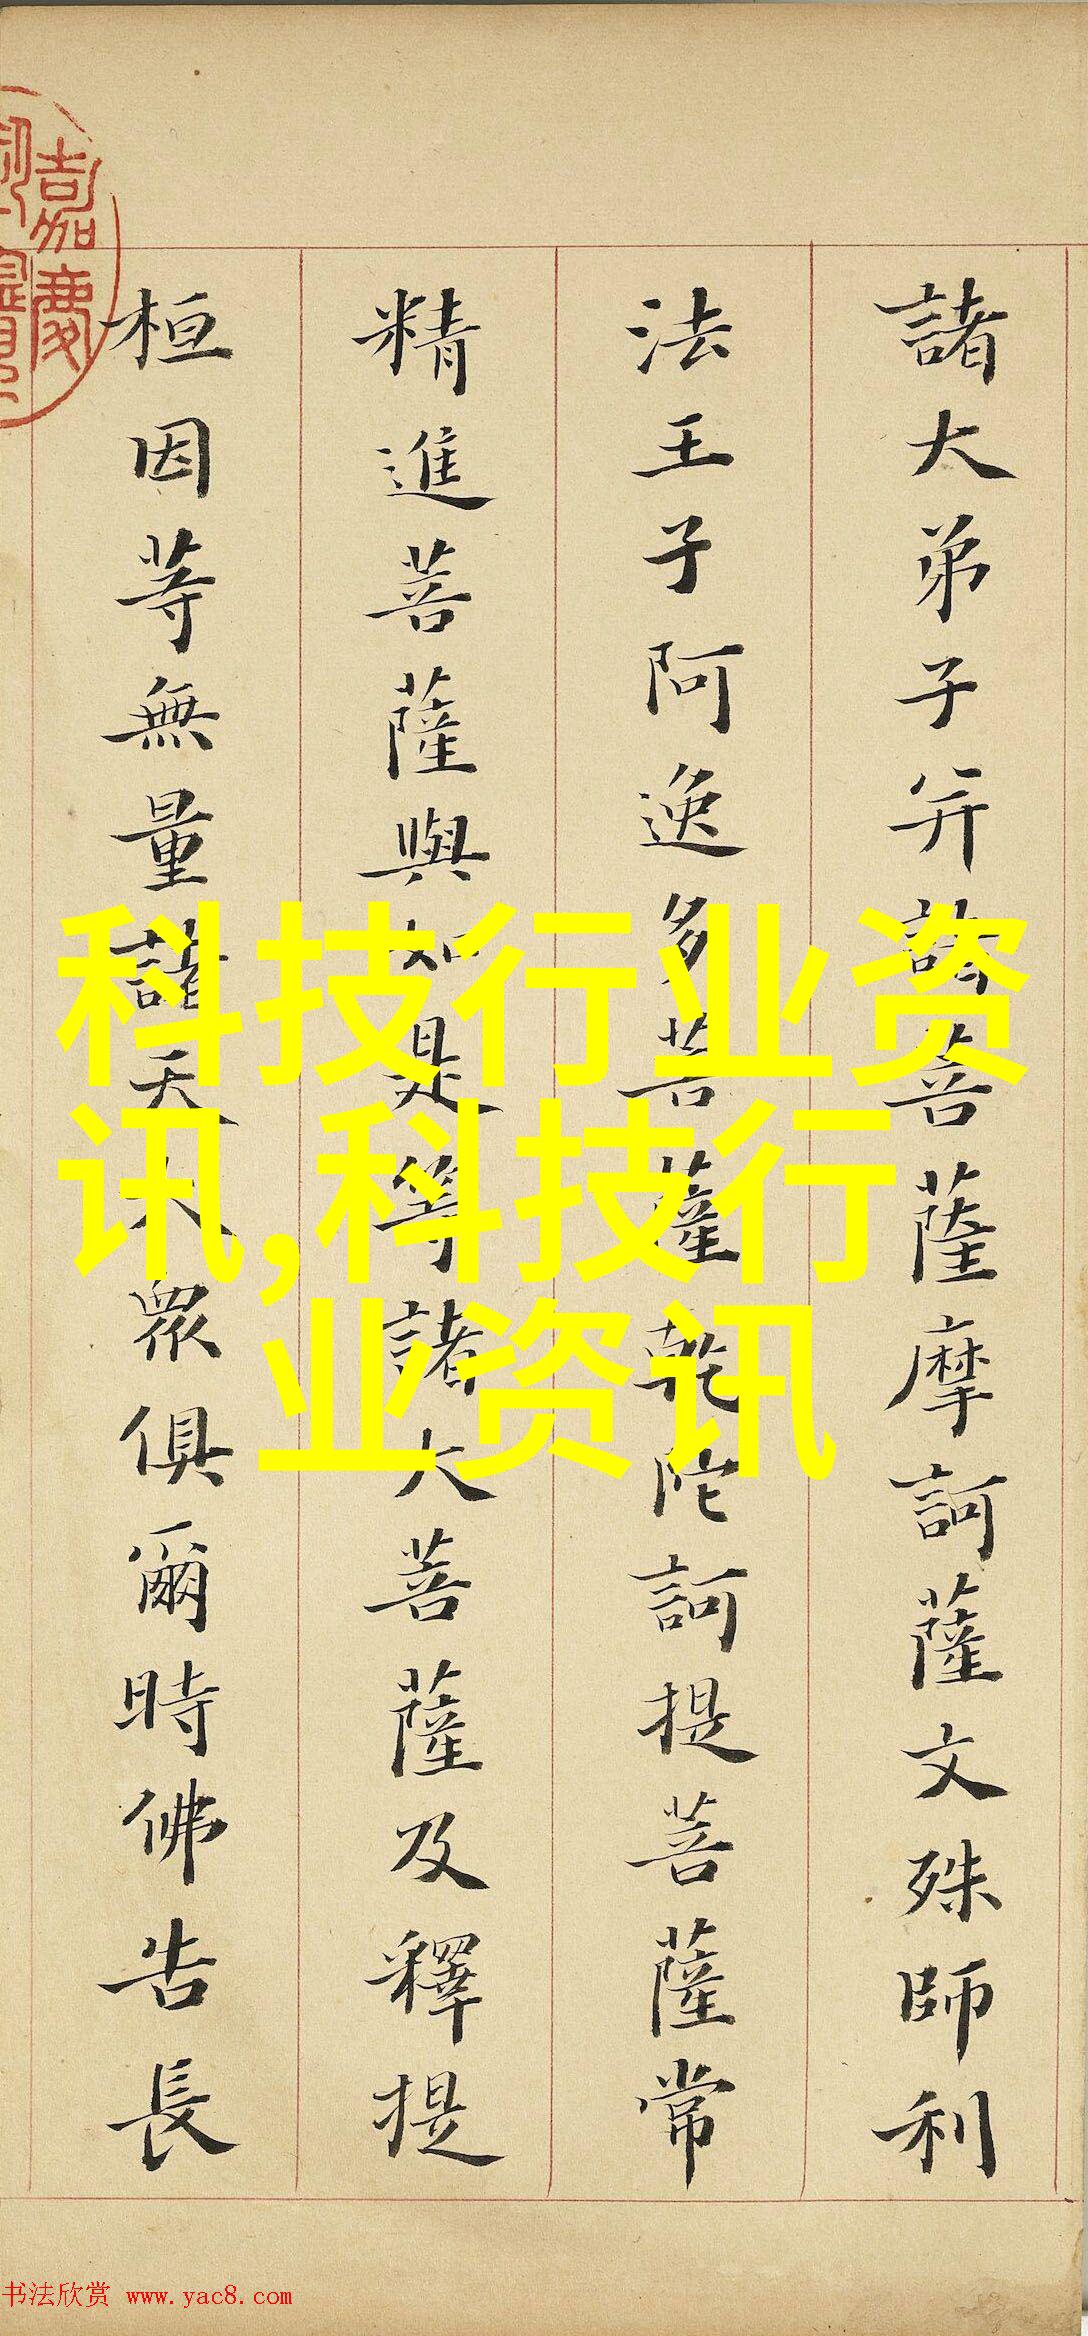 諸大弟子并諸菩薩摩訶薩文殊師利
法王子阿逸多菩薩乾陀訶提菩薩常
精進菩薩與如是等諸大菩薩及釋提
桓因等無量諸天大眾俱爾時佛告長
嘉慶
科技行业资
讯,科技行
业资讯
书法欣赏 www.yac8.com